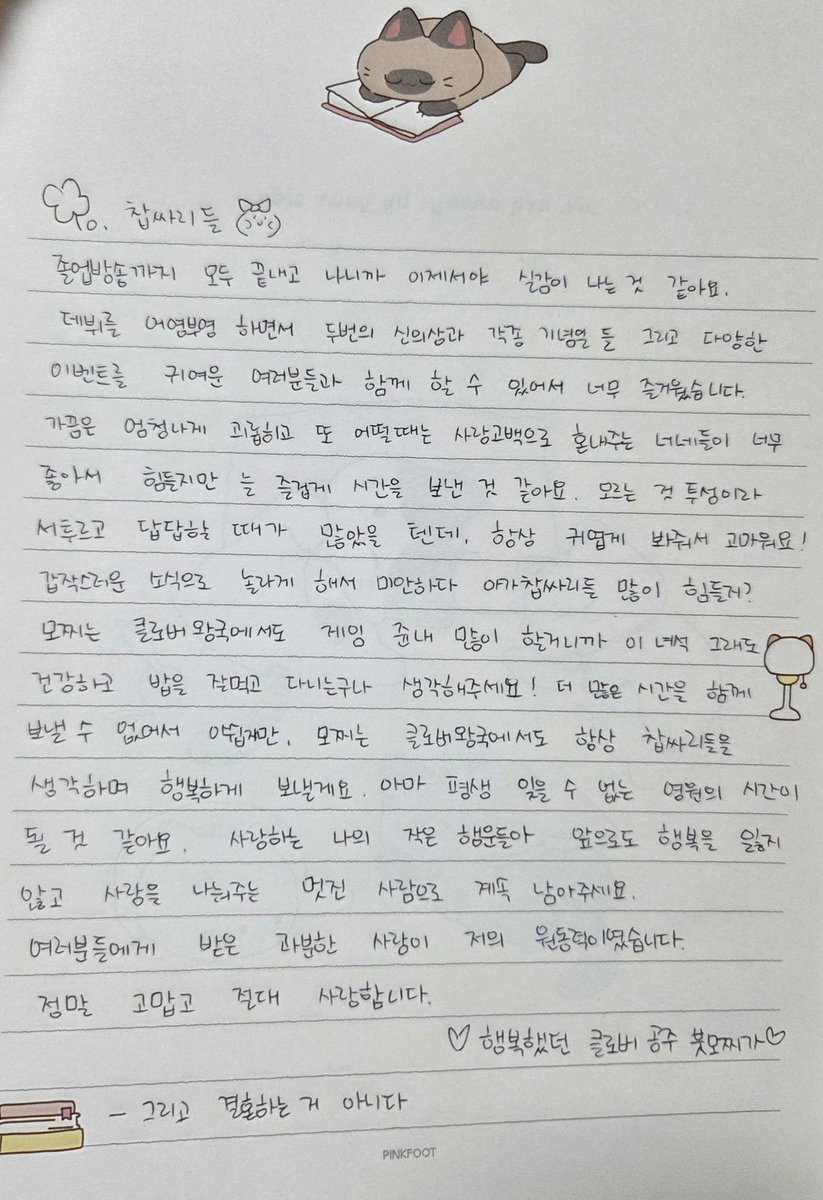 To. 찹싸리들
졸업방송까지 모두 끝내고 나니까 이제서야 실감이 나는 것 같아요.
데뷔를 어영부영 하면서 두번의 신의상과 각종 기념일 들 그리고 다양한
이벤트를 귀여운 여러분들과 함께 할 수 있어서 너무 즐거웠습니다.
가끔은 엄청나게 괴롭히고 또 어떨때는 사랑고백으로 혼내주는 너네들이 너무
좋아서 힘들지만 늘 즐겁게 시간을 보낸 것 같아요. 모르는 것 투성이라
서투르고 답답하실 때가 많았을 텐데, 항상 귀엽게 봐줘서 고마워요!
갑작스러운 소식으로 놀라게 해서 미안하다 아가찹싸리들 많이 힘들지?
모찌는 클로버 왕국에서도 게임 쥰내 많이 할거니까 이 녀석 그래도
건강하고 밥을 잘먹고 다니는구나 생각해주세요! 더 많은 시간을 함께
보낼 수 없어서 아쉽지만, 모찌는 클로버왕국에서도 항상 찹싸리들을
생각하며 행복하게 보낼게요. 아마 평생 잊을 수 없는 영원의 시간이
될 것 같아요. 사랑하는 나의 작은 행운들아 앞으로도 행복을 잃지
않고 사랑을 나눠주는 멋진 사람으로 계속 남아주세요.
여러분들에게 받은 과분한 사랑이 저의 원동력이였습니다.
정말 고맙고 절대 사랑합니다.
♡ 행복했던 클로버 공주 붓모찌가♡
- 그리고 결혼하는 거 아니다
PINKFOOT